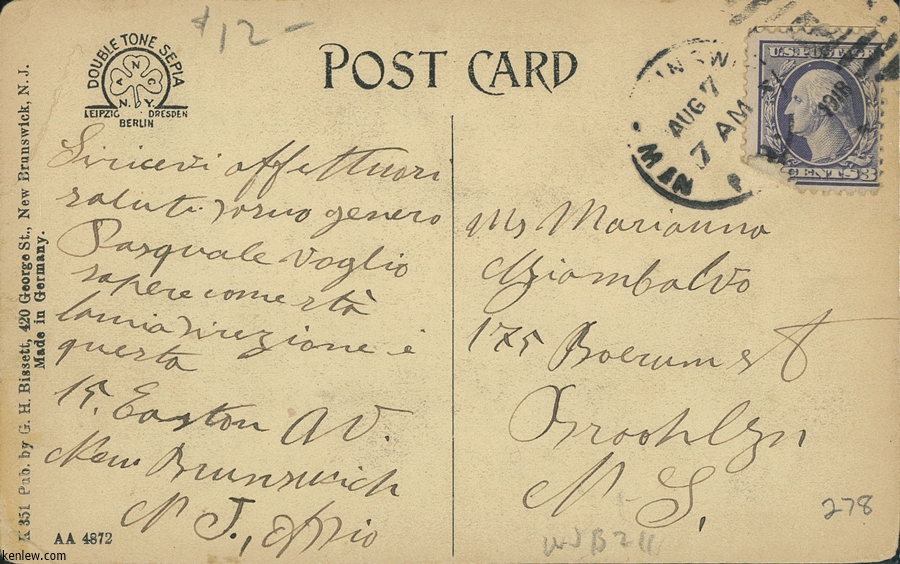 $12-
POST CARD
DOUBLE TONE SEPIA
A N C
N. Y.
LEIPZIG DRESDEN
BERLIN
K 351 Pub. by G. H. Bissett, 420 George St., New Brunswick, N. J.
Made in Germany.
AUG 7
7 AM
1918
U.S. POSTAGE
CENTS 3
Si ricevi affettuosi
saluti suo genero
Pasquale voglio
sapere come sta
la mia direzione è
questa
15. Easton AV.
New Brunswich
N J.,
Mr Marianno
Sgiambalvo
175 Boerum st
Brooklyn
N. Y.
278
AA 4872
kenlew.com